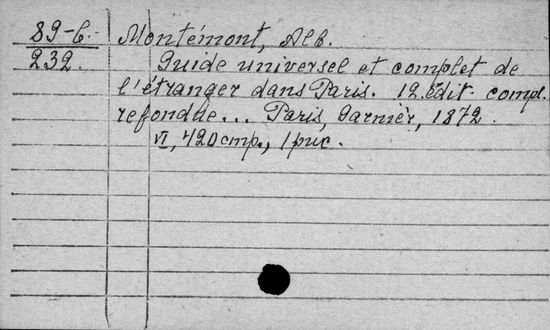 89-6. Montémont, Alb.
232. Guide universel et complet de
l'étranger dans Paris. 12 édit. compl.
refondue... Paris, Garnier, 1872.
VI, 420 стр., 1 рис.